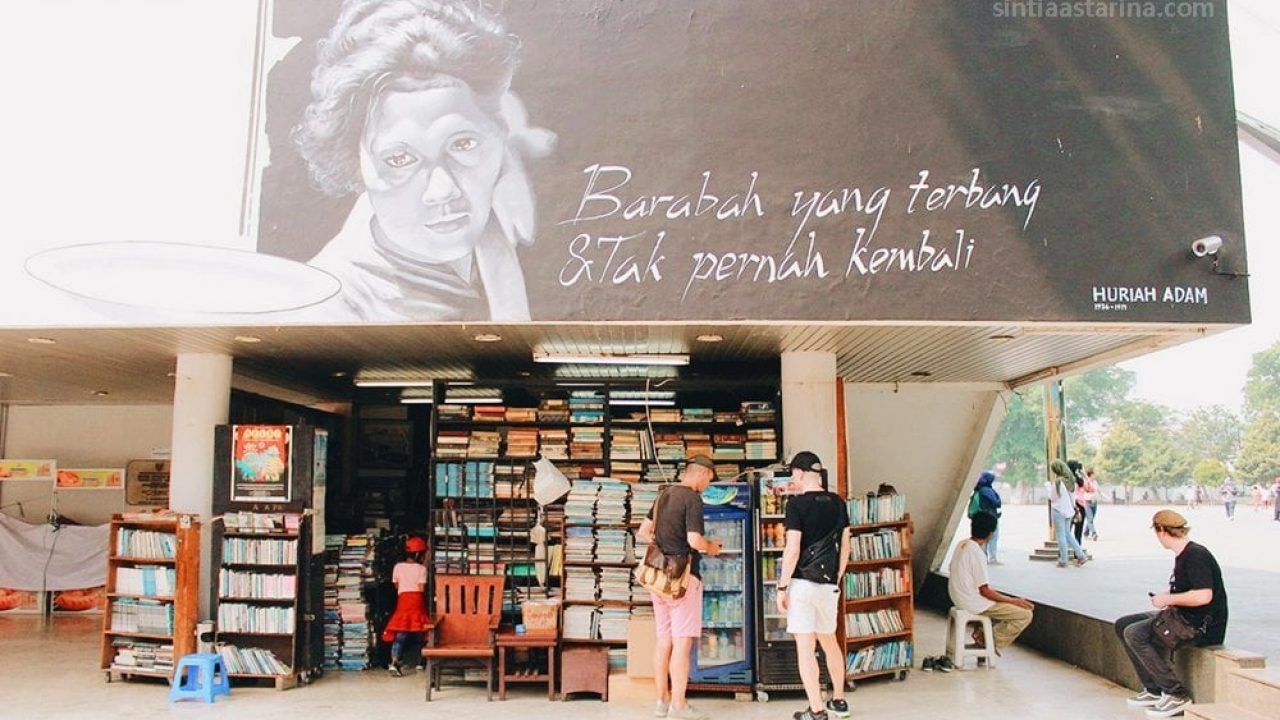 sintiaastarina.com
Barabah yang terbang
&Tak pernah kembali
HURIAH ADAM